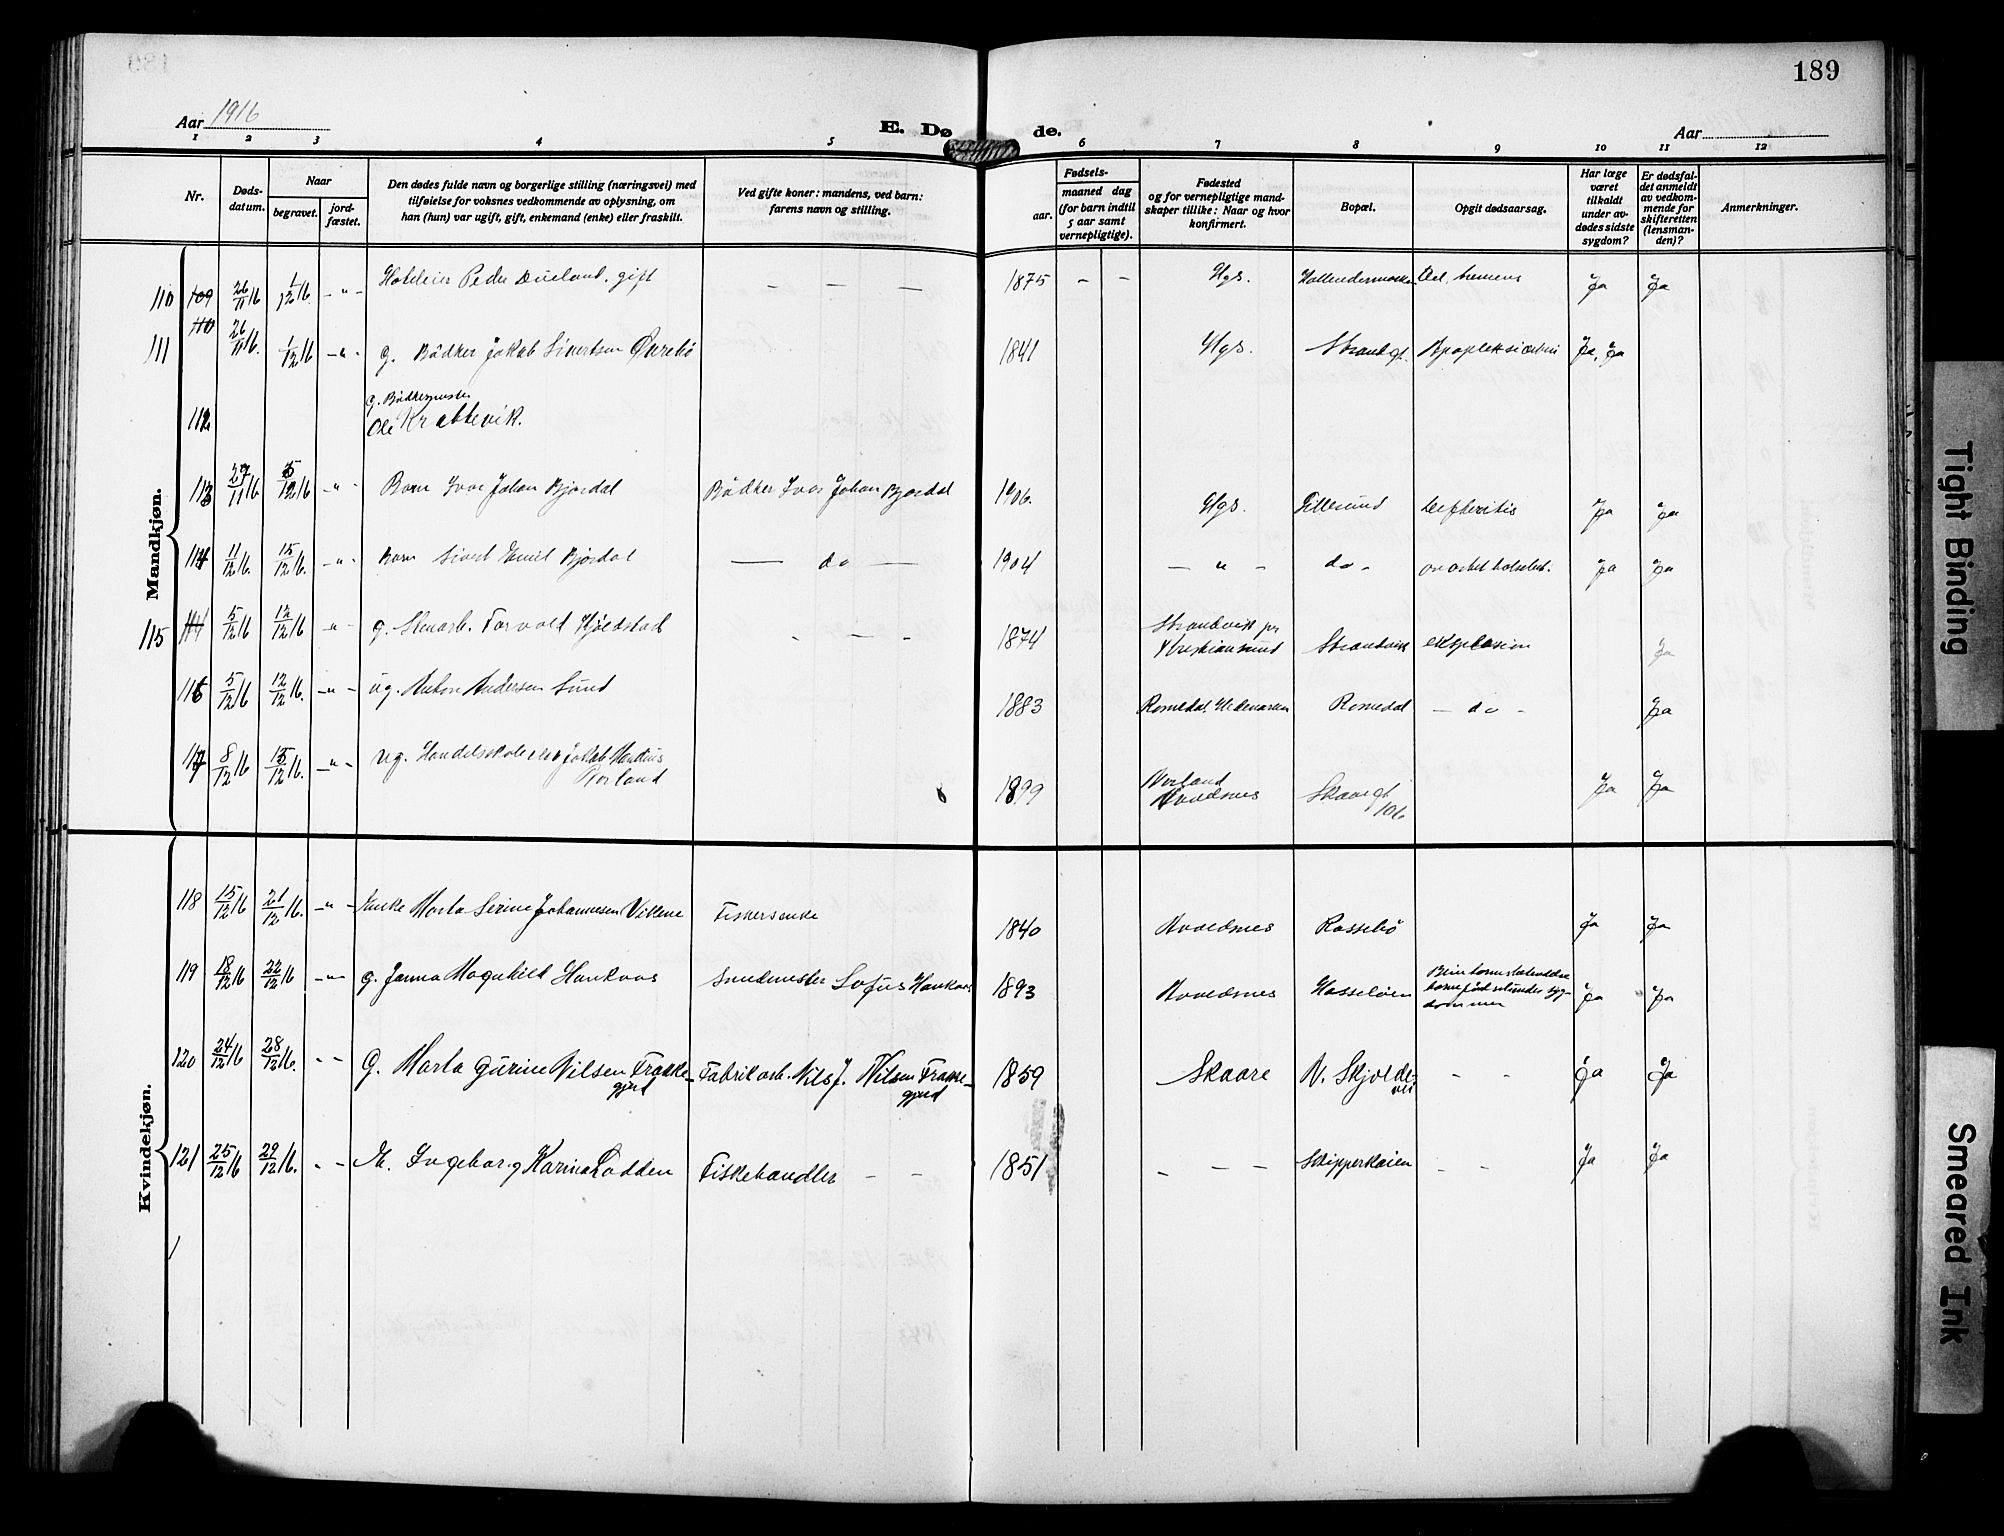 189
Aar 1916
E. Dø de.
Aar
1 2 3 4 5 6 7 8 9 10 11 12
Nr.
Døds-
datum.
Naar
begravet.
jord-
fæstet.
Den dødes fulde navn og borgerlige stilling (næringsvei) med
tilføielse for voksnes vedkommende av oplysning, om
han (hun) var ugift, gift, enkemand (enke) eller fraskilt.
Ved gifte koner: mandens, ved barn:
farens navn og stilling.
Fødsels-
aar.
maaned dag
(for barn indtil
5 aar samt
vernepligtige).
Fødested
og for vernepligtige mand-
skaper tillike: Naar og hvor
konfirmert.
Bopæl.
Opgit dødsaarsag.
Har læge
været
tilkaldt
under av-
dødes sidste
sygdom?
Er dødsfal-
det anmeldt
av vedkom-
mende for
skifteretten
(lensman-
den)?
Anmerkninger.
Mandkjøn.
110 109 26/11 16 1/12 16. - " - Hoteleier Peder Dueland, gift - - - 1875 - - Hgs. Del. tremens Ja Ja
111 110 26/11 16. 1/12 16 - " - g. Bödker Jakob Sivertsen 1841 Hgs. Strandgt. Ja, Ja
g. Bödkermester
112 Ole Krabbevik.
113 27/11 16 5/12 16 - " - Barn Ivar Johan Bjordal Bödker Ivar Johan Bjordal 1906. Hgs. Difteritis Ja Ja
114 11/12 16. 15/12 16. - " - Barn Sivert Emil Bjordal — do — 1904 — " - do - Ja Ja
115 114 5/12 16 12/12 16 - " - g. Stenarb. Torvald Kjöldstad - - - 1874 Strandvik pr
Kristiansund Strandvik eksplosion Ja
116 5/12 16 12/12 16. - " - ug. Anton Andersen Lund 1883 Romedal Hedemarken Romedal — do - Ja
117 8/12 16 15/12 16. - " - ug. Handelsskoleelev Jakob
Norland 1899 Norland
Avaldsnes Skaaregt
106 Ja Ja
Kvindekjøn.
118 15/12 16 21/12 16. - " - Enke Marta Serine Johannesen Vikene Fiskersenke 1840 Avaldsnes Rossebö Ja Ja
119 18/12 16 22/12 16 - " - g. Janna Magnhild Haukaas Smedmester Sofus Haukaas 1893 Avaldsnes Hasselöen Ja Ja
120 24/12 16 28/12 16. - - G. Marta Gurine Nilsen Frakke-
gjerd Fabrikarb. Nils J. Nilsen Frakke-
gjerd 1859 Skaare N. Skjolda-
vei - - Ja Ja
121 25/12 16 29/12 16. - - Ingeborg Karina Lodden Fiskehandler - - 1851 - - - - Skipperkaien - - Ja Ja
Tight Binding
Smeared Ink